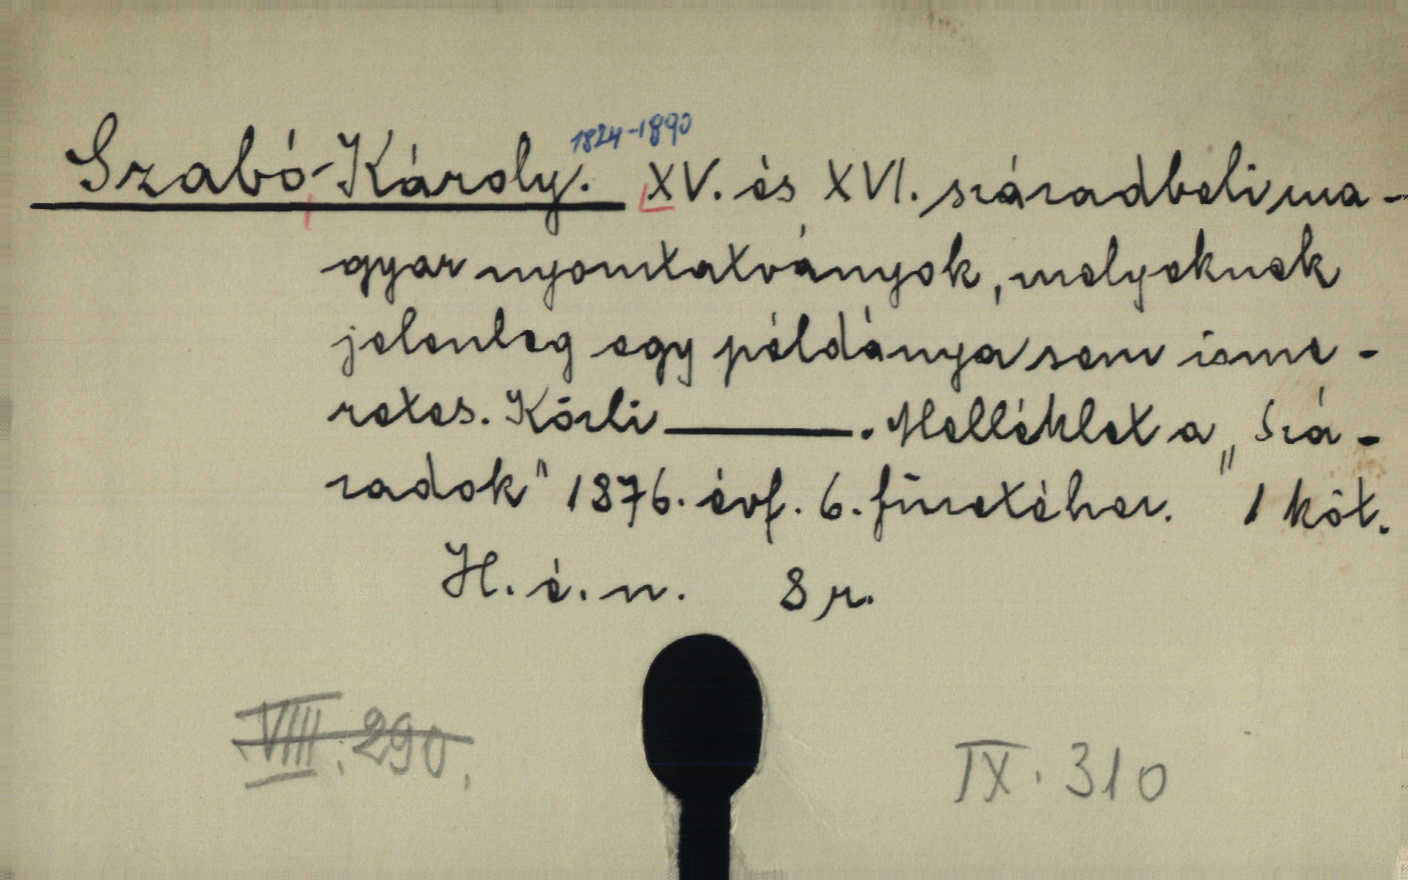 Szabó Károly. 1824-1890 XV. és XVI. századbeli ma-
gyar nyomtatványok, melyeknek
jelenleg egy példánya sem isme-
retes. Közli ———. Melléklet a „Szá-
zadok" 1876. évf. 6. füzetéhez. 1 köt.
H. é. n. 8 r.
VIII. 290.
IX. 310